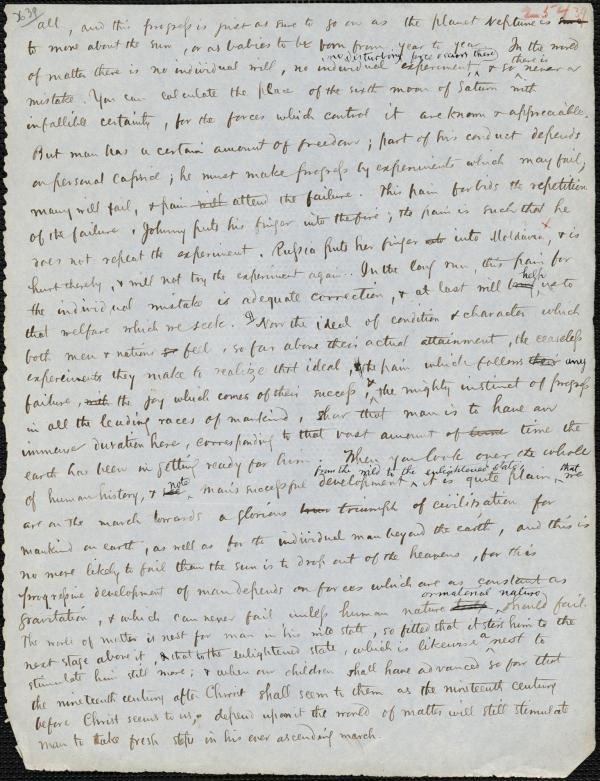 2639
25439
all, and this progress is just as sure to go on as the planet Neptune is
to move about the sun, or as babies to be born from year to year. In the world
no disturbing force occurs there
of matter there is no individual will, no individual experiment, & so there is never a
mistake. You can calculate the place of the sixth moon of Saturn with
infallible certainty, for the forces which control it are known & appreciable.
But man has a certain amount of freedom; part of his conduct depends
on personal caprice; he must make progress by experiments which may fail,
many will fail, & pain will attend the failure. This pain forbids the repetition
of the failure. Johnny puts his finger into the fire; the pain is such that he
does not repeat the experiment. Russia puts her finger into Moldavia, & is
hurt thereby, & will not try the experiment again. In the long run, this pain for
the individual mistake is adequate correction, & at last will help us to
that welfare which we seek. Now the ideal of condition & character which
both men & nations feel, so far above their actual attainment, the ceaseless
experiments they make to realize that ideal, the pain which follows their any
failure, with the joy which comes of their success, & the mighty instinct of progress
in all the leading races of mankind, show that man is to have an
immense duration here, corresponding to that vast amount of time the
earth has been in getting ready for him. When you look over the whole
from the wild to the enlightened state
of human history, & note man's successful development, it is quite plain that we
are on the march towards a glorious triumph of civilization for
mankind on earth, as well as for the individual man beyond the earth, and this is
no more likely to fail than the sun is to drop out of the heavens, for this
progressive development of man depends on forces which are as constant as
or material nature
gravitation, & which can never fail unless human nature should fail.
The world of matter is nest for man in his wild state, so fitted that it stirs him to the
next stage above it, & that to the enlightened state, which is likewise a nest to
stimulate him still more; & when our children shall have advanced so far that
the nineteenth century after Christ shall seem to them as the nineteenth century
before Christ seems to us, depend upon it the world of matter will still stimulate
man to take fresh steps in his ever ascending march.